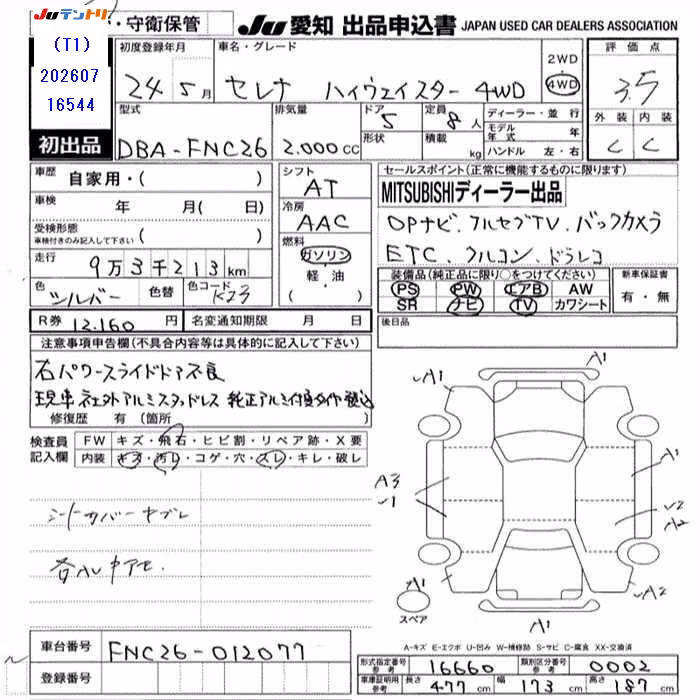 JUテントリ
(T1)
202607
16544
初出品
・守衛保管
JU 愛知 出品申込書 JAPAN USED CAR DEALERS ASSOCIATION
初度登録年月 24 5月
車名・グレード セレナ ハイウェイスター 4WD
2WD
4WD
評価点 3.5
外装 内装
C C
型式 DBA-FNC26
排気量 2.000cc
ドア 5
形状
定員 8人
積載 kg
ディーラー・並行
モデル年式 年
ハンドル 左・右
車歴 自家用・( )
車検 年 月( 日)
受検形態
車検付きのみ記入して下さい ( )
走行 9万3千213km
色 シルバー 色替 色コード K23
シフト AT
冷房 AAC
燃料 ガソリン
軽・油
( )
セールスポイント(正常に機能するものに限ります)
MITSUBISHIディーラー出品
OPナビ、フルセグTV、バックカメラ
ETC、フルコン、ドラレコ
装備品(純正品に限り○をつけてください)
PS PW エアB AW
SR ナビ TV カワシート
新車保証書
有・無
後日品
R券 12.160円 名変通知期限 月 日
注意事項申告欄(不具合内容等は具体的に記入して下さい)
右パワースライドドア不良
現車社外アルミスタッドレス 純正アルミ付夏タイヤ積込
修復歴 有(箇所 )
検査員記入欄
FW キズ・飛石・ヒビ割・リペア跡・X要
内装 キズ・汚レ・コゲ・穴・スレ・キレ・破レ
シートカバーヤブレ
A1
A1
A1
A3
√1
√2
√2
A2
A1
A1
スペア
A-キズ E-エクボ U-凹み W-補修跡 S-サビ C-腐食 XX-交換済
車台番号 FNC26-012077
登録番号
形式指定番号 参考 16660 類別区分番号 参考 0002
車庫証明用 参考 長さ 4.77 幅 173 高さ 187 cm